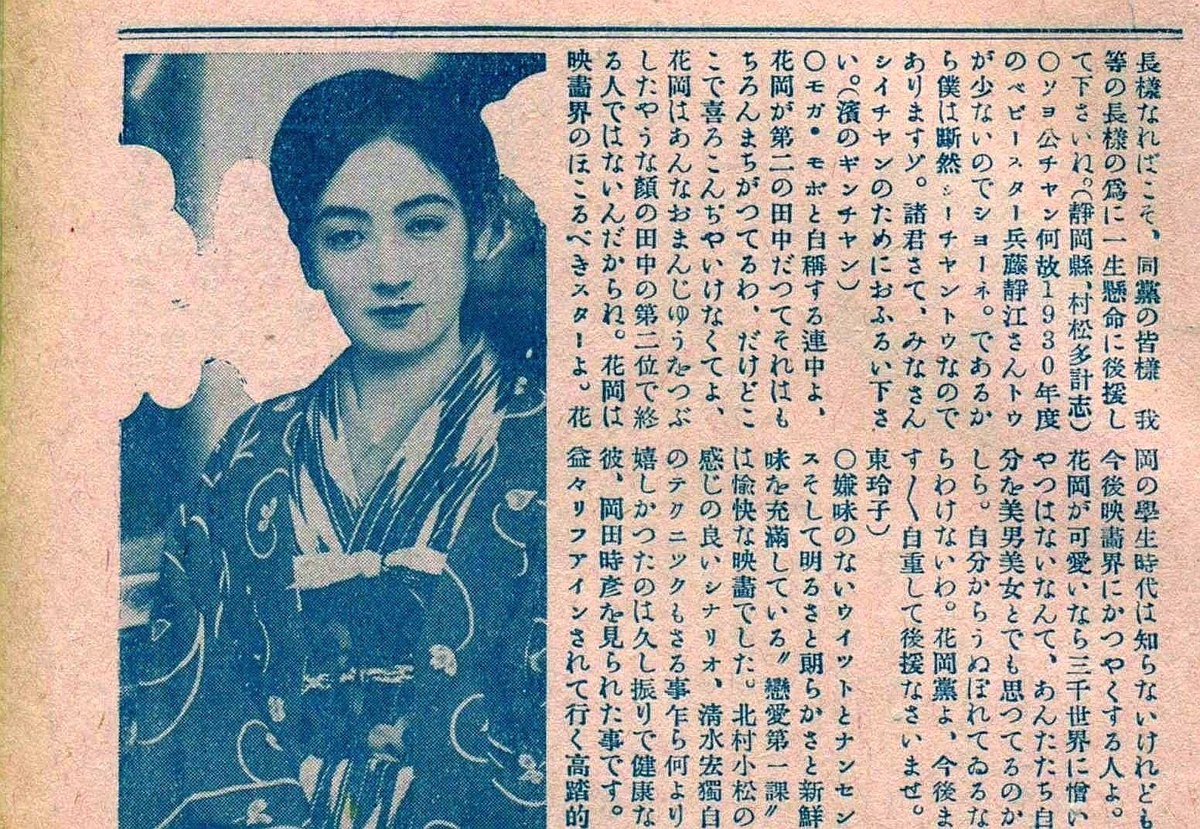 長樣なればこそ、同黨の皆樣 我
等の長樣の爲に一生懸命に後援し
て下さいね。（靜岡縣、村松多計志）
〇ソヨ公チャン何故1930年度
のベビースター兵藤靜江さんトウ
が少ないのでショーネ。であるか
ら僕は斷然シーチャントウなので
ありますゾ。諸君さて、みなさん
シイチヤンのためにおふるい下さ
い。（濱のギンチヤン）
〇モガ・モボと自稱する連中よ、
花岡が第二の田中だつてそれはも
ちろんまちがつてるわ、だけどこ
こで喜ろこんぢやいけなくてよ、
花岡はあんなおまんじゆうをつぶ
したやうな顏の田中の第二位で終
る人ではないんだからね。花岡は
映畵界のほこるべきスターよ。花
岡の學生時代は知らないけれども
今後映畵界にかつやくする人よ。
花岡が可愛いなら三千世界に憎い
やつはないなんて、あんたたち自
分を美男美女とでも思つてるのか
しら。自分からうぬぼれてゐるな
らわけないわ。花岡黨よ、今後ま
す〱自重して後援なさいませ。
東玲子）
〇嫌味のないウイットとナンセン
スそして明るさと朗らかさと新鮮
味を充滿している〃戀愛第一課〃
は愉快な映畵でした。北村小松の
感じの良いシナリオ、清水宏獨自
のテクニツクもさる事乍ら何より
嬉しかつたのは久し振りで健康な
彼、岡田時彦を見られた事です。
益々リフアインされて行く高踏的